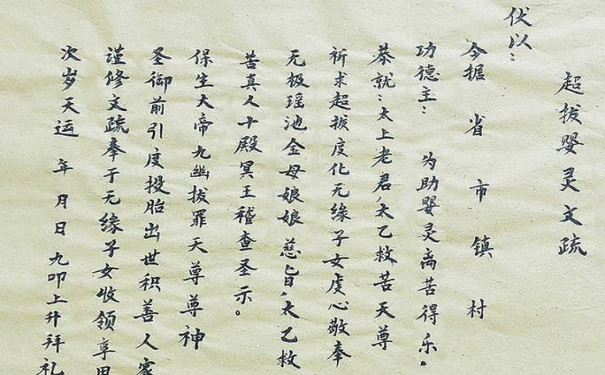 超拔婴灵文疏
伏以：
今据 省 市 镇 村
功德主： 为助婴灵离苦得乐，
恭就：太上老君，太乙救苦天尊
祈求超拔度化无缘子女虔心敬奉
无极瑶池金母娘娘慈旨，太乙救
苦真人十殿冥王稽查圣示。
保生大帝九幽拔罪天尊尊神
圣御前引度投胎出世积善人家
谨修文疏奉于无缘子女收领享用
次岁天运 年 月 日 九叩上升拜礼